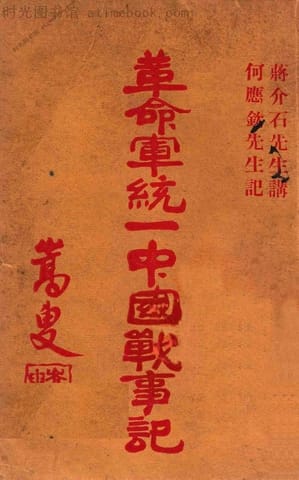 时光图书馆 atimebook.com
蔣介石先生講
何應欽先生記
革命軍統一中國戰事記
嵩叟